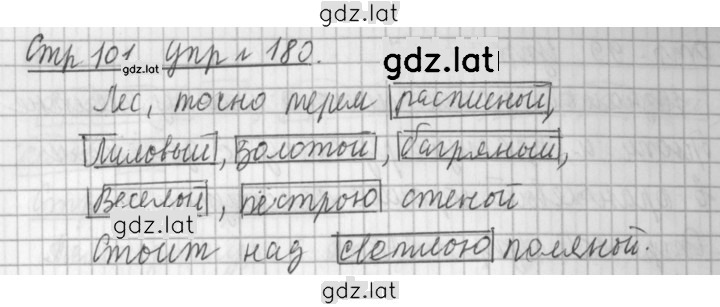 gdz.lat
Стр 101 упр № 180.
gdz.lat
gdz.lat
Лес, точно терем расписной,
Лиловый, золотой, багряный,
Веселой, пестрою стеной
gdz.lat
Стоит над светлою поляной.
gdz.lat